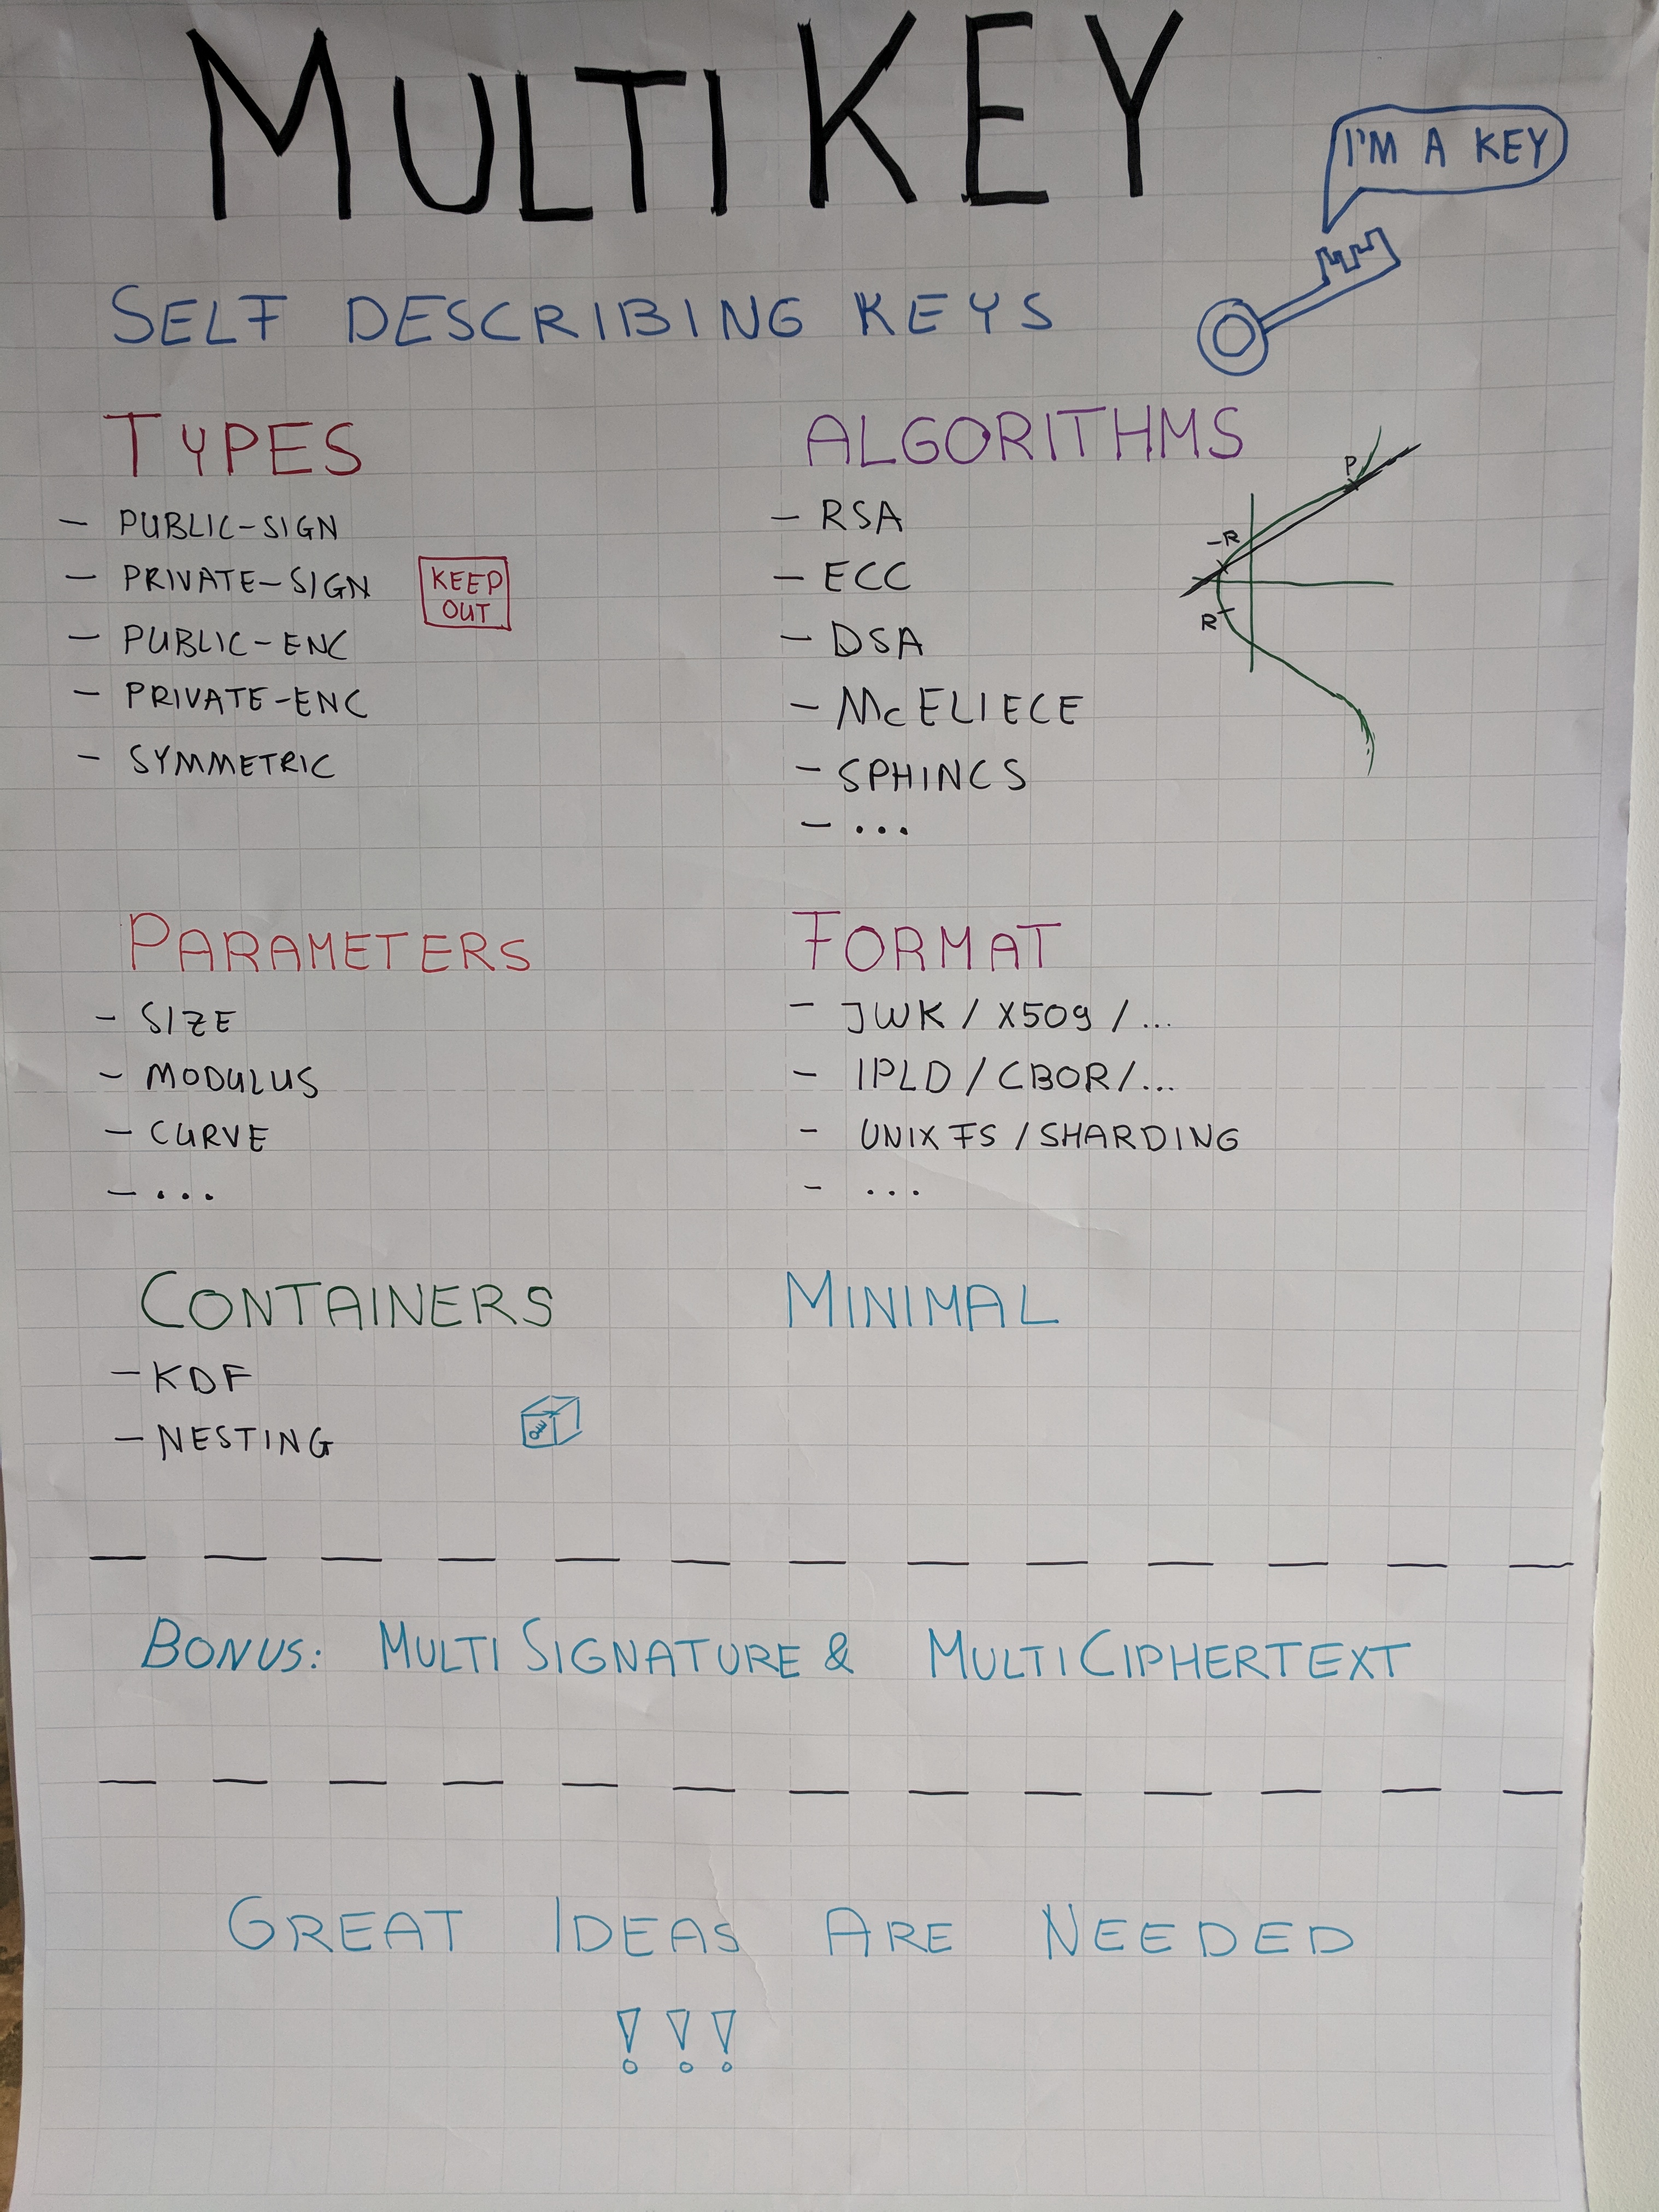 MULTI KEY
I'M A KEY
SELF DESCRIBING KEYS
TYPES
- PUBLIC-SIGN
- PRIVATE-SIGN
KEEP
OUT
- PUBLIC-ENC
- PRIVATE-ENC
- SYMMETRIC
ALGORITHMS
- RSA
- ECC
- DSA
- McELIECE
- SPHINCS
- ...
P
-R
R
PARAMETERS
- SIZE
- MODULUS
- CURVE
- ...
FORMAT
- JWK / X509 / ...
- IPLD / CBOR / ...
- UNIXFS / SHARDING
- ...
CONTAINERS
- KDF
- NESTING
MINIMAL
BONUS: MULTISIGNATURE & MULTICIPHERTEXT
GREAT IDEAS ARE NEEDED
!!!